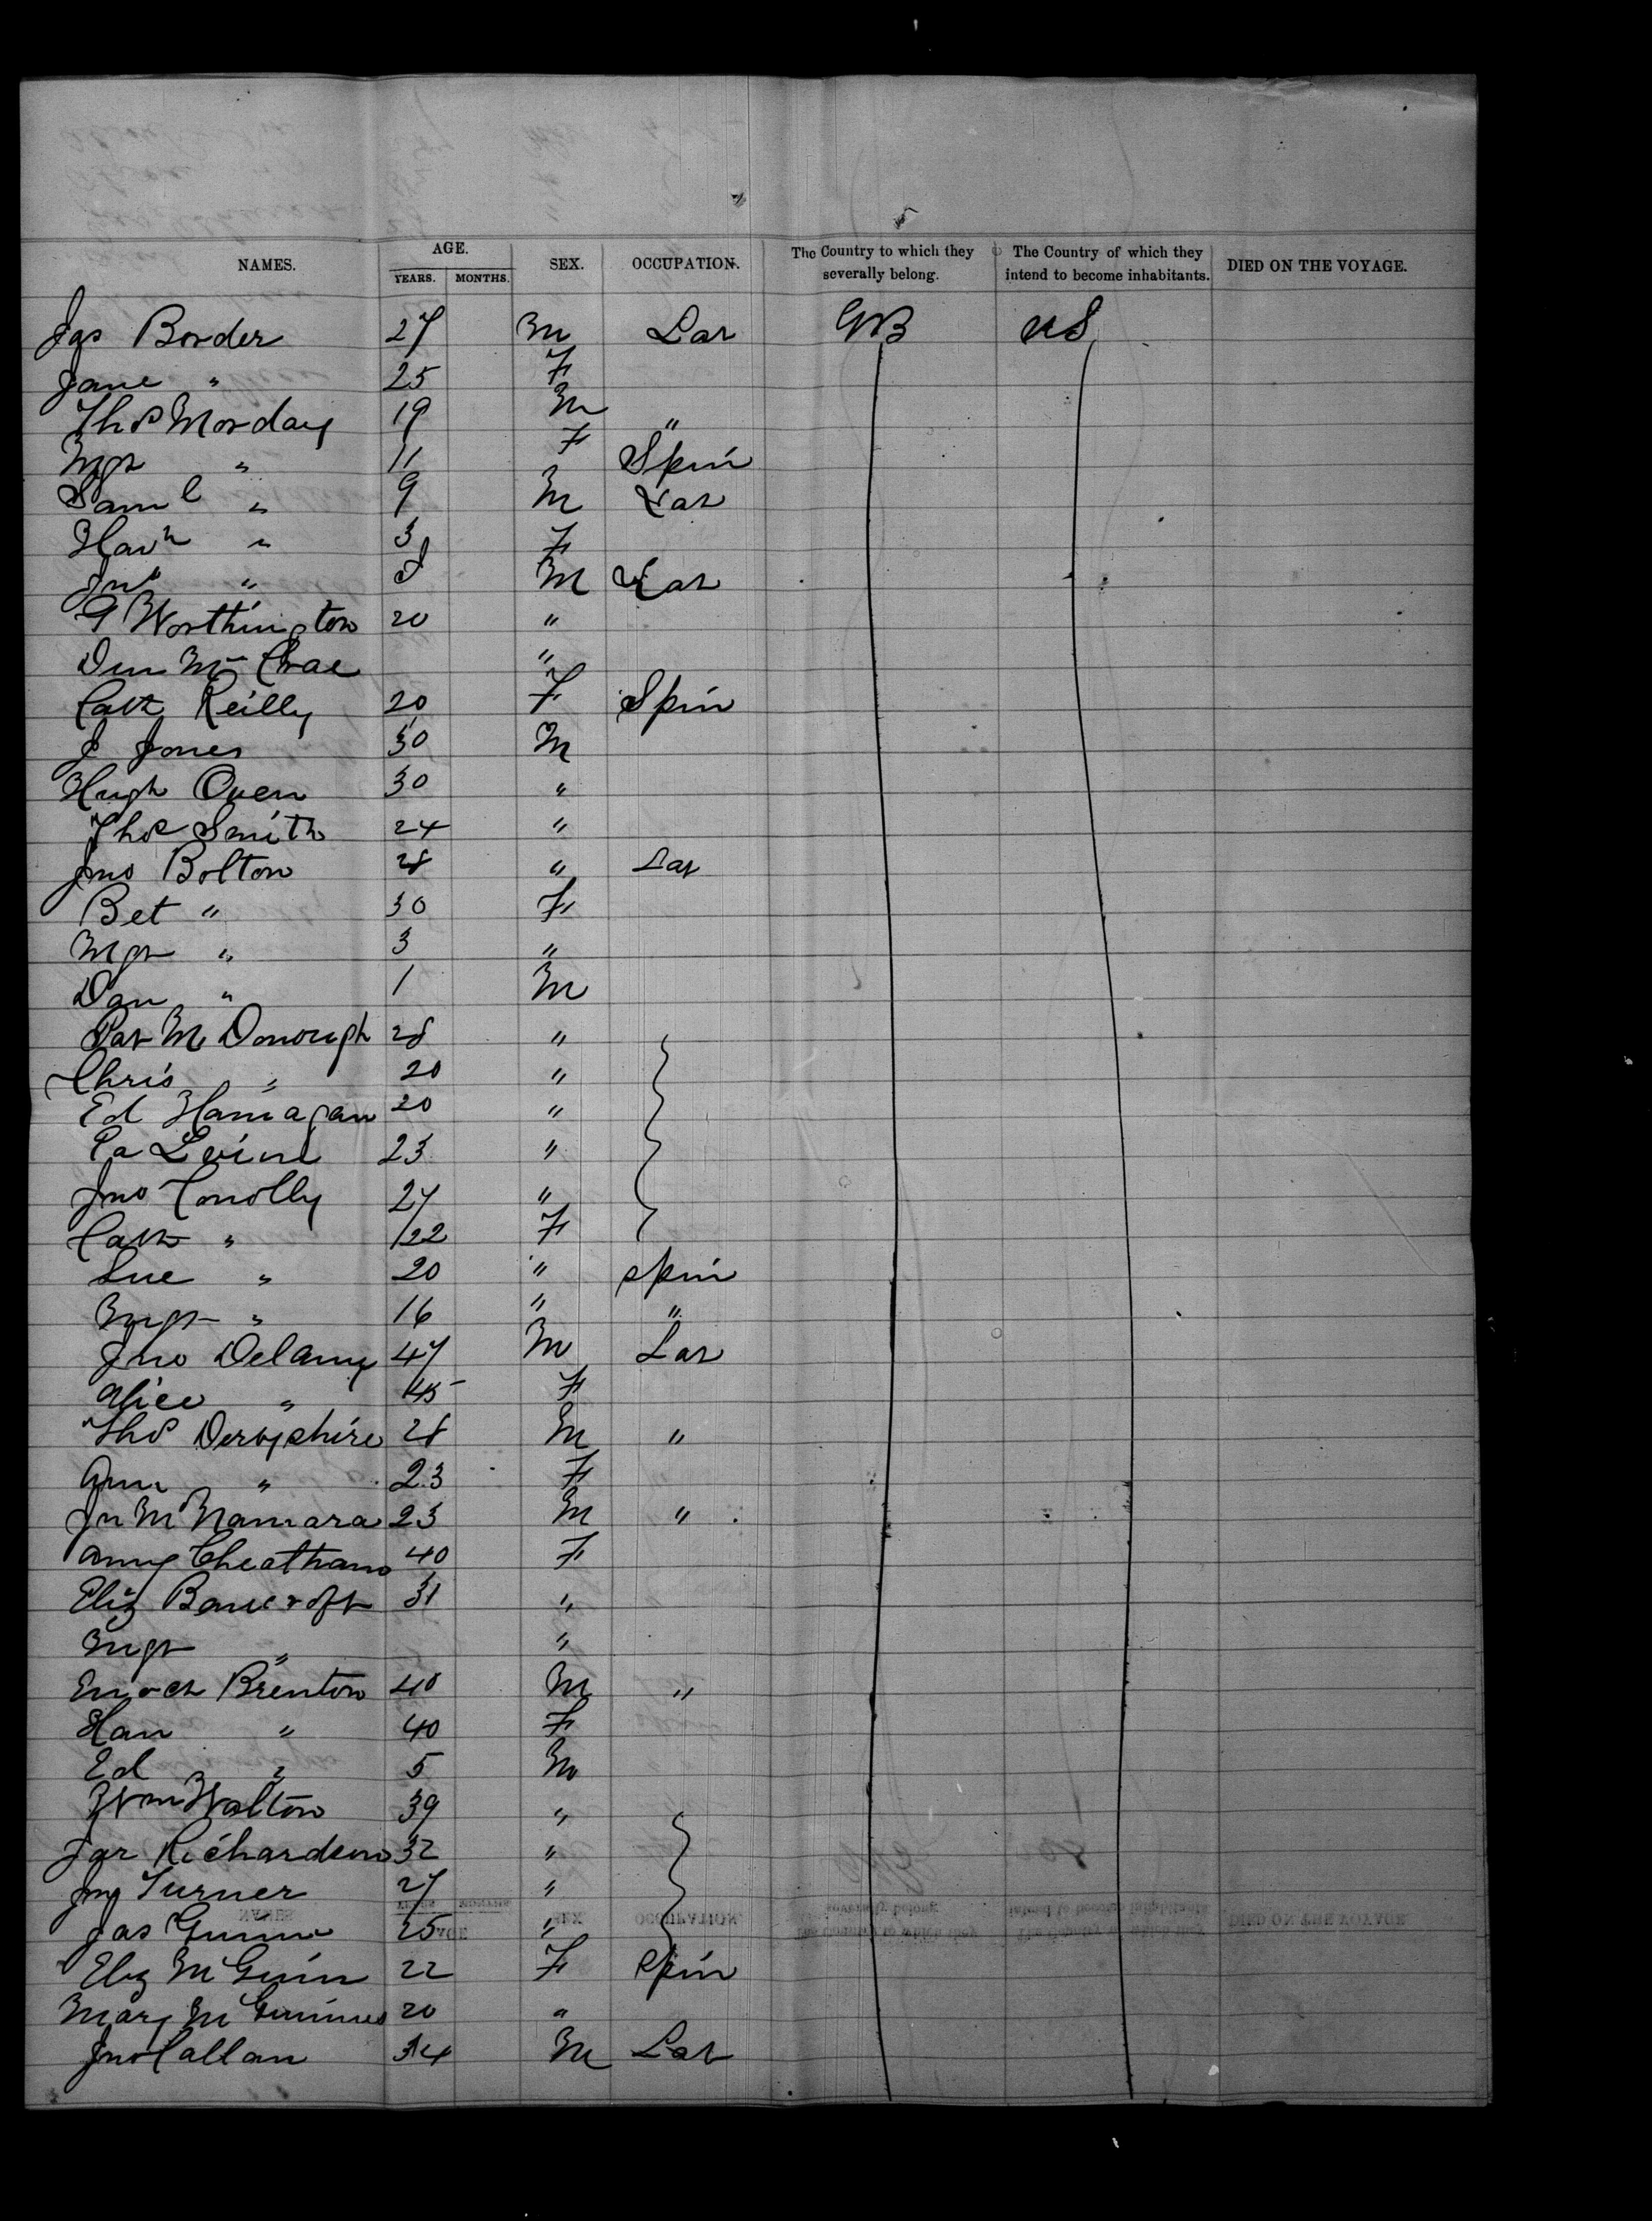 NAMES. AGE. YEARS. MONTHS. SEX. OCCUPATION. The Country to which they severally belong. The Country of which they intend to become inhabitants. DIED ON THE VOYAGE.
Jas Border 27 M Lar GB US
Jane " 25 F
Thos Morday 19 M "
Mgt " 11 F Spin
Saml " 9 M Lar
Han " 3 F
Jno " M Lar
G Worthington 20 "
Dun McCrae "
Cath Reilly 20 F Spin
J Jones 30 M
Hugh Owen 30 "
Thos Smith 24 "
Jno Bolton 28 " Lar
Bet " 30 F
Mgt " 3 "
Dan " 1 M
Pat McDonough 28 "
Chris " 20 "
Ed Hanagan 20 "
Pa 23 "
Jno Conolly 27 "
Cath " 22 F
Sue " 20 " Spin
Mgt " 16 " "
Jno Delany 47 M Lar
Alice " 45 F
Thos Derbyshire 28 M "
Ann " 23 F
Jn McNamara 23 M "
Amy Cheatham 40 F
Eliz Bancroft 31 "
Mgt " "
Enoch Brenton 40 M "
Han " 40 F
Ed " 5 M
Wm Walton 39 "
Jas Richardson 32 "
Turner 27 "
Jas Gunn 25 "
Eliz McGuin 22 F Spin
Mary McGuinnes 20 "
Jno Callan 34 M Lar